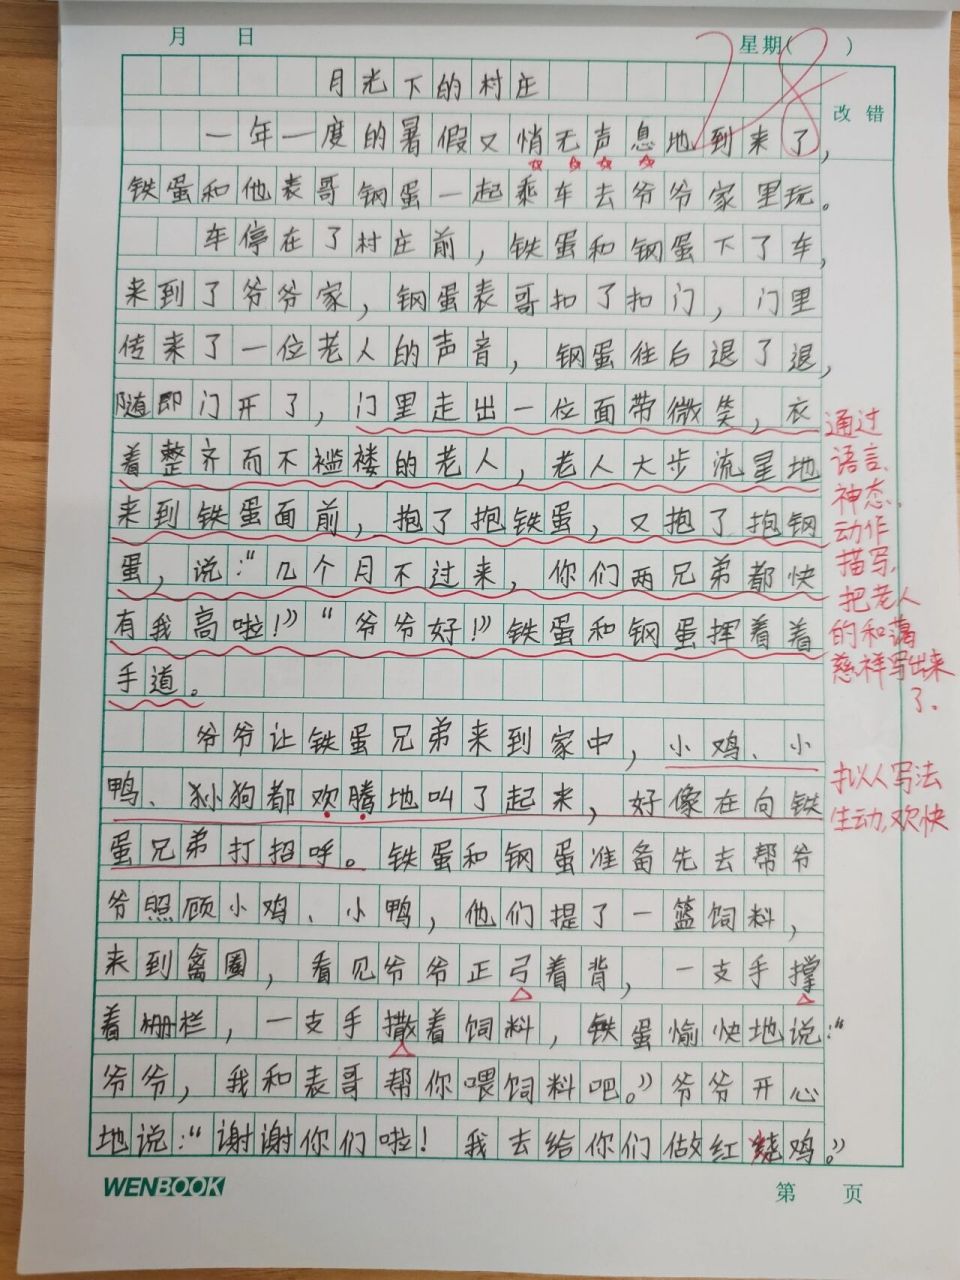 月 日 星期( )
28
改错
月光下的村庄
一年一度的暑假又悄无声息地到来了，
铁蛋和他表哥钢蛋一起乘车去爷爷家里玩。
车停在了村庄前，铁蛋和钢蛋下了车，
来到了爷爷家，钢蛋表哥扣了扣门，门里
传来了一位老人的声音，钢蛋往后退了退，
随即门开了，门里走出一位面带微笑，衣
着整齐而不褴褛的老人，老人大步流星地
来到铁蛋面前，抱了抱铁蛋，又抱了抱钢
蛋，说：“几个月不过来，你们两兄弟都快
有我高啦！”“爷爷好！”铁蛋和钢蛋挥着着
手道。
通过
语言、
神态、
动作
描写，
把老人
的和蔼
慈祥写出来
了。
爷爷让铁蛋兄弟来到家中，小鸡、小
鸭、小狗都欢腾地叫了起来，好像在向铁
蛋兄弟打招呼。铁蛋和钢蛋准备先去帮爷
拟人写法
生动，欢快
爷照顾小鸡、小鸭，他们提了一篮饲料，
来到禽圈，看见爷爷正弓着背，一支手撑
着栅栏，一支手撒着饲料，铁蛋愉快地说：“
爷爷，我和表哥帮你喂饲料吧。”爷爷开心
地说：“谢谢你们啦！我去给你们做红烧鸡。”
WENBOOK
第 页